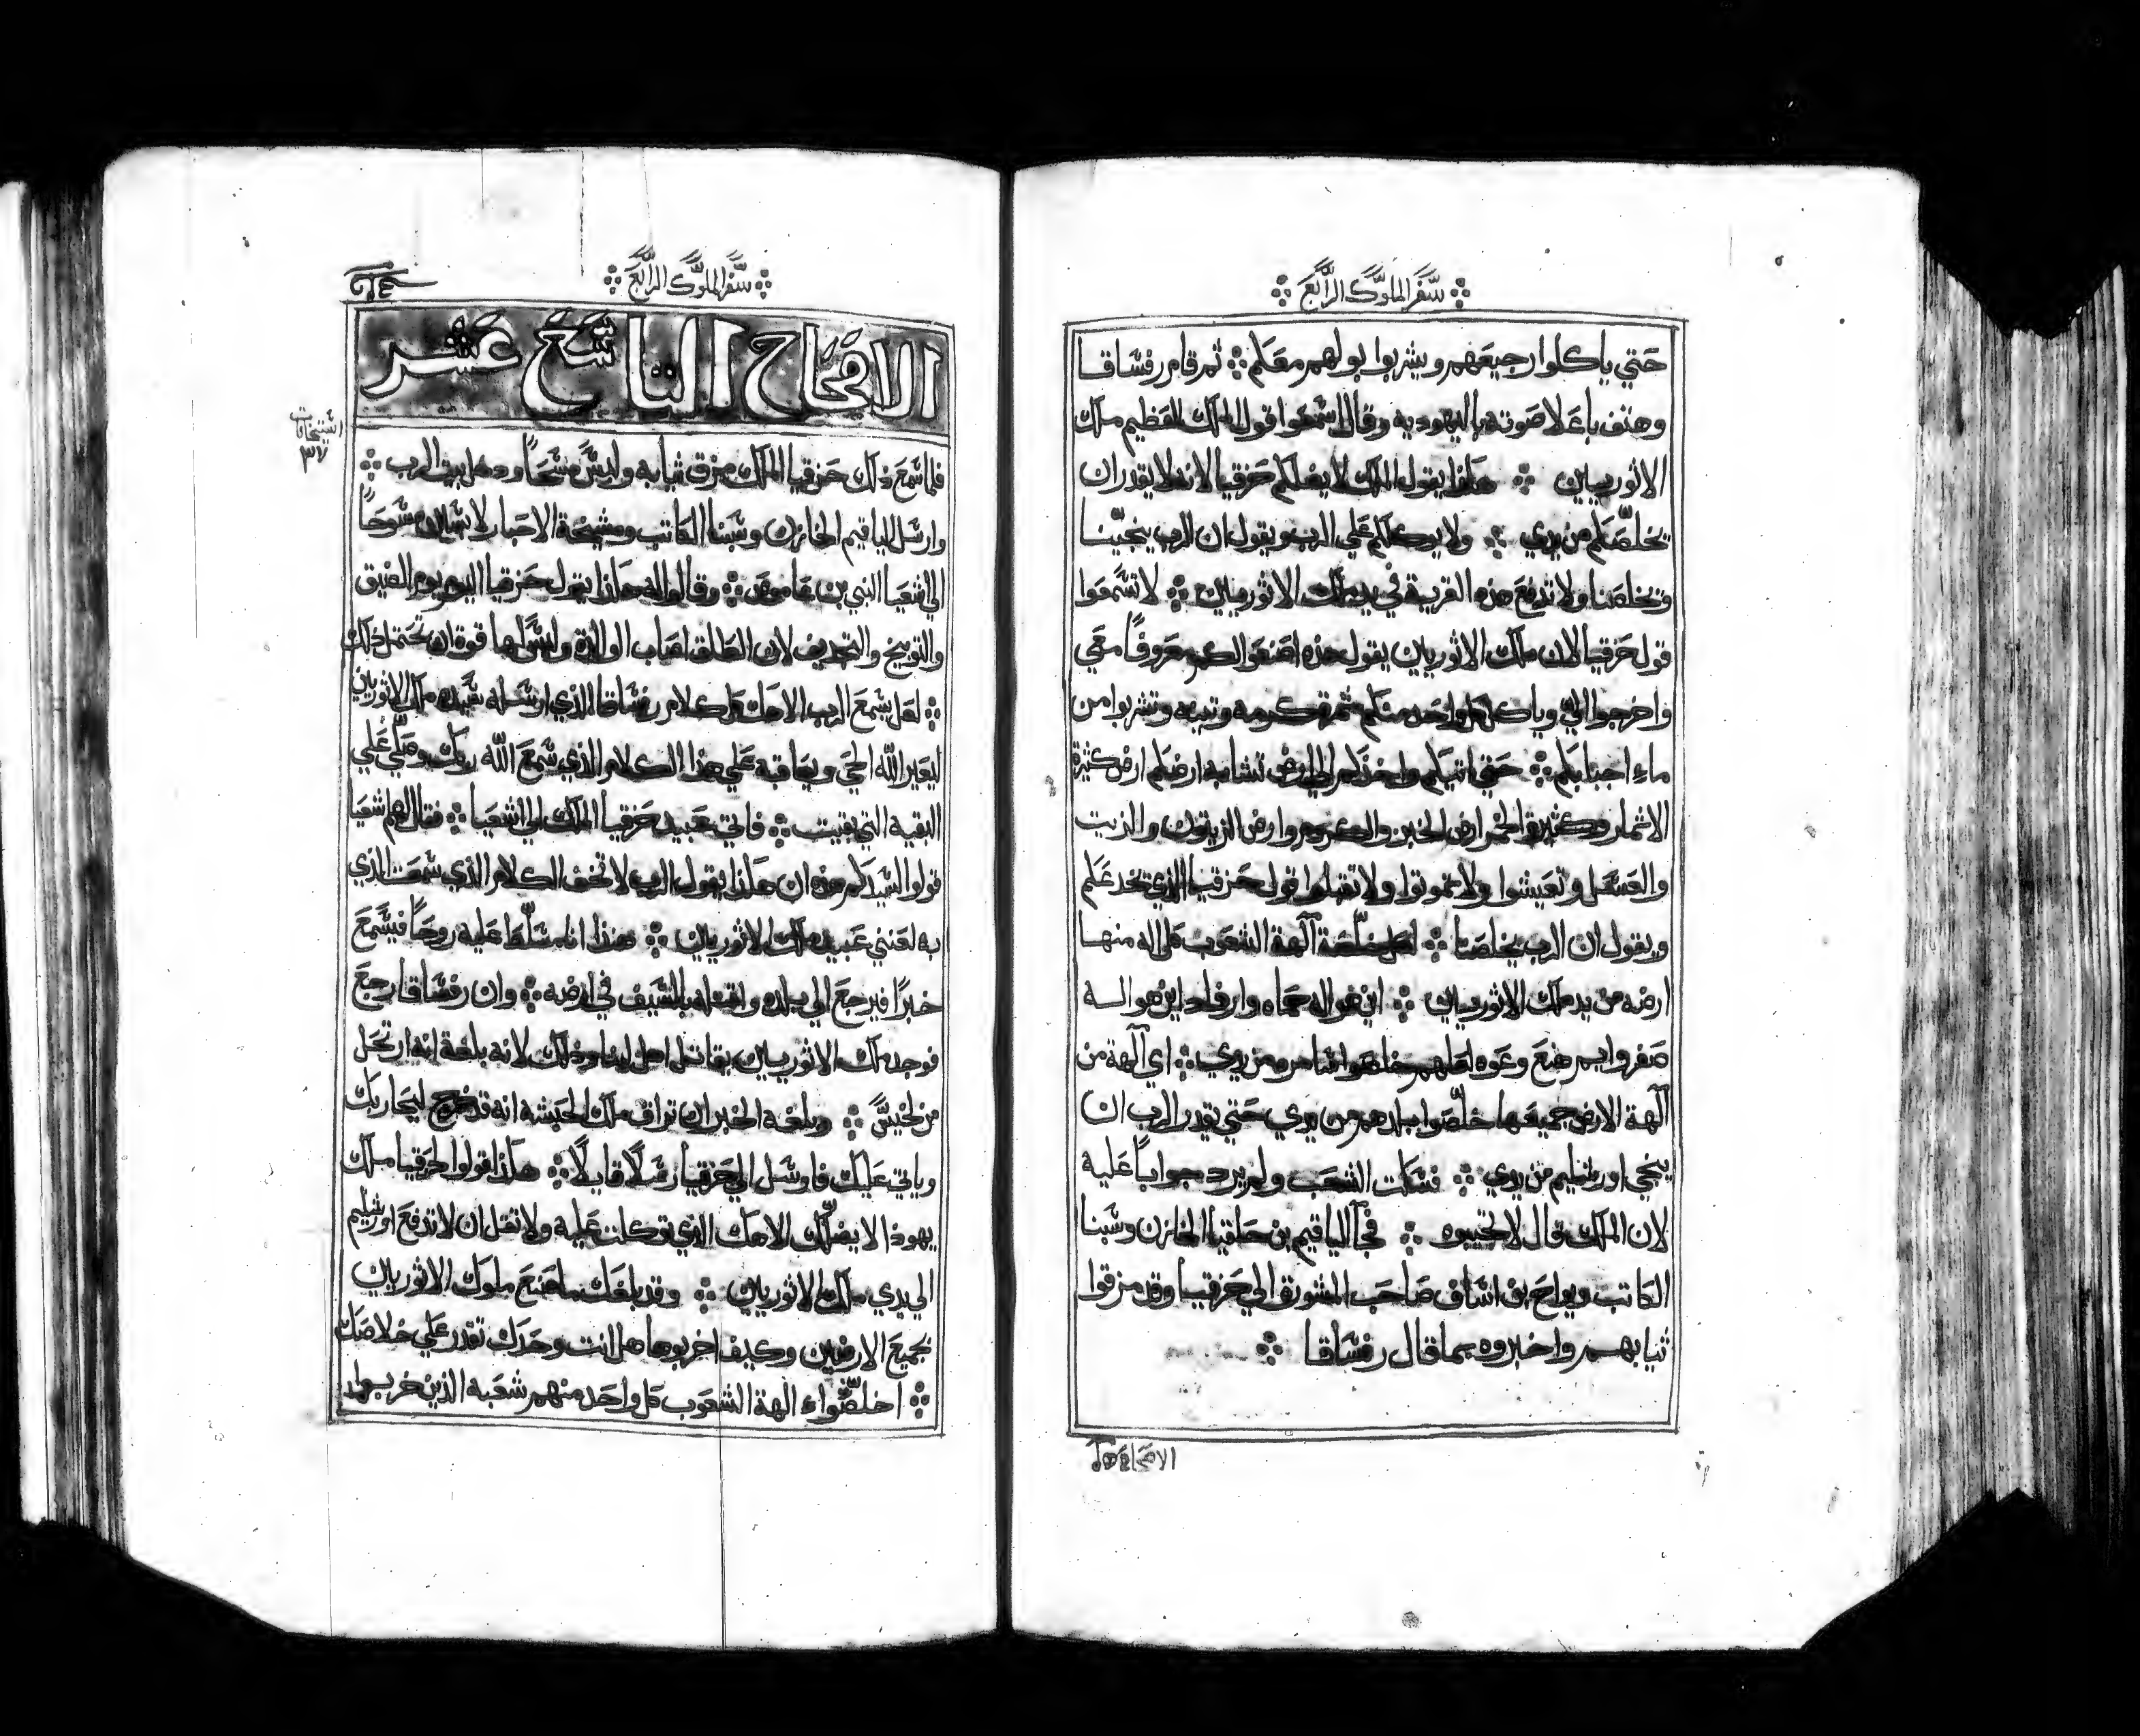 سفر الملوك الرابع
حتي ياكلوا رجيعهم ويشربوا بولهم معكم ثم قام رفساقا
وهتف باعلا صوته باليهوديه وقال اسمعوا قول الملك العظيم ملك
الاثوريين هكذا يقول الملك لا يضلكم حزقيا لانه لا يقدر ان
يخلصكم من يدي ولا يوكلكم علي الرب ويقول ان الرب ينجينا
ويخلصنا ولا تدفع هذه القرية في يد ملك الاثوريين لا تسمعوا
قول حزقيا لان ملك الاثوريين يقول هذه اصنعوا لكم معروفًا معي
واخرجوا الي وياكل كل واحد منكم ثمرة كرمه وتينه وتشربوا من
ماء اجبابكم حتي اتيكم واخذكم الي ارض تشابه ارضكم ارض كثيرة
الاثمار وكثيرة الخمر ارض الخبز والكروم وارض الزيتون والزيت
والعسل وتعيشوا ولا تموتوا ولا تقبلوا قول حزقيا الذي يخدعكم
ويقول ان الرب يخلصنا لعل خلصة آلهة الشعوب كل اله منها
ارضه من يد ملك الاثوريين اين هو اله حماه وارفاد اين هو اله
صفروايم هنع وعوه لعلهم خلصوا شامره من يدي اي آلهة من
آلهة الارض جميعها خلصوا بلدهم من يدي حتي يقدر الرب ان
ينجي اورشليم من يدي فسكت الشعب ولم يرد جوابًا عليه
لان الملك قال لا تجيبوه فجآ الياقيم بن حلقيا الخازن وشبنا
الكاتب ويواح بن اساف صاحب المشورة الي حزقيا وقد مزقوا
ثيابهم واخبروه بما قال رفساقا
سفر الملوك الرابع
الاصحاح التاسع عشر
فلما سمع ذلك حزقيا الملك مزق ثيابه ولبس مسحًا ودخل بيت الرب
وارسل الياقيم الخازن وشبنا الكاتب ومشيخة الاحبار لابسين مسوحًا
الي اشعيا النبي بن عاموص وقالوا له هكذا يقول حزقيا اليوم يوم الضيق
والتوبيخ والتجديف لان الطلق اصاب الوالدة وليس لها قوة ان تحتمل ذلك
لعل يسمع الرب الاهك كل كلام رفساقا الذي ارسله سيده ملك الاثوريين
ليعير الله الحي ويعاقبه علي هذا الكلام الذي سمع الله ربك وصلي علي
البقيه التي بقيت فاتي عبيد حزقيا الملك الي اشعيا فقال لهم اشعيا
قولوا لسيدكم هذه ان هكذا يقول الرب لا تخف الكلام الذي سمعت الذي
به لعنني عبيد ملك الاثوريين هنذا انا مسلط عليه روحًا فيسمع
خبرًا فيرجع الي بلده واقتله بالسيف في ارضه وان رفساقا رجع
فوجد ملك الاثوريين يقاتل اهل لبنا وذلك لانه بلغة انه ارتحل
من لخيس وبلغه الخبر ان تراق ملك الحبشه انه قد خرج ليحاربك
وياتي عليك فارسل الي حزقيا رسلًا قايلًا هكذا قولوا لحزقيا ملك
يهوذا لا يضلك الاهك الذي توكلت عليه ولا تقل ان لا تدفع اورشليم
الي يدي ملك الاثوريين وقد بلغك ما صنع ملوك الاثوريين
بجميع الارضين وكيف اخربوها هل انت وحدك تقدر علي خلاصك
اخلصواء الهة الشعوب كل واحد منهم شعبه الذين خربوهم